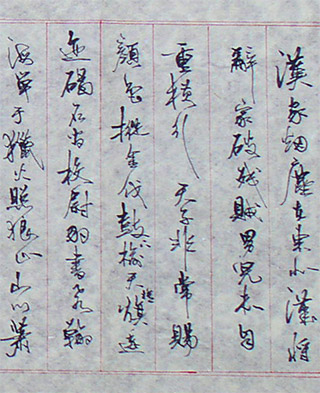 漢家烟塵在東北漢將
辭家破殘賊男兒本自
重橫行天子非常賜
顏色摐金伐鼓下榆关旌旆逶
迤碣石間校尉羽書飛瀚
海單于獵火照狼山山川蕭